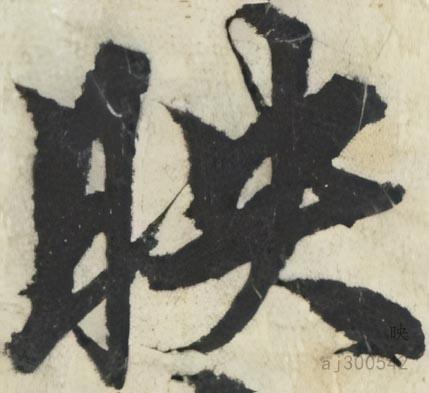 映
映
aj300542